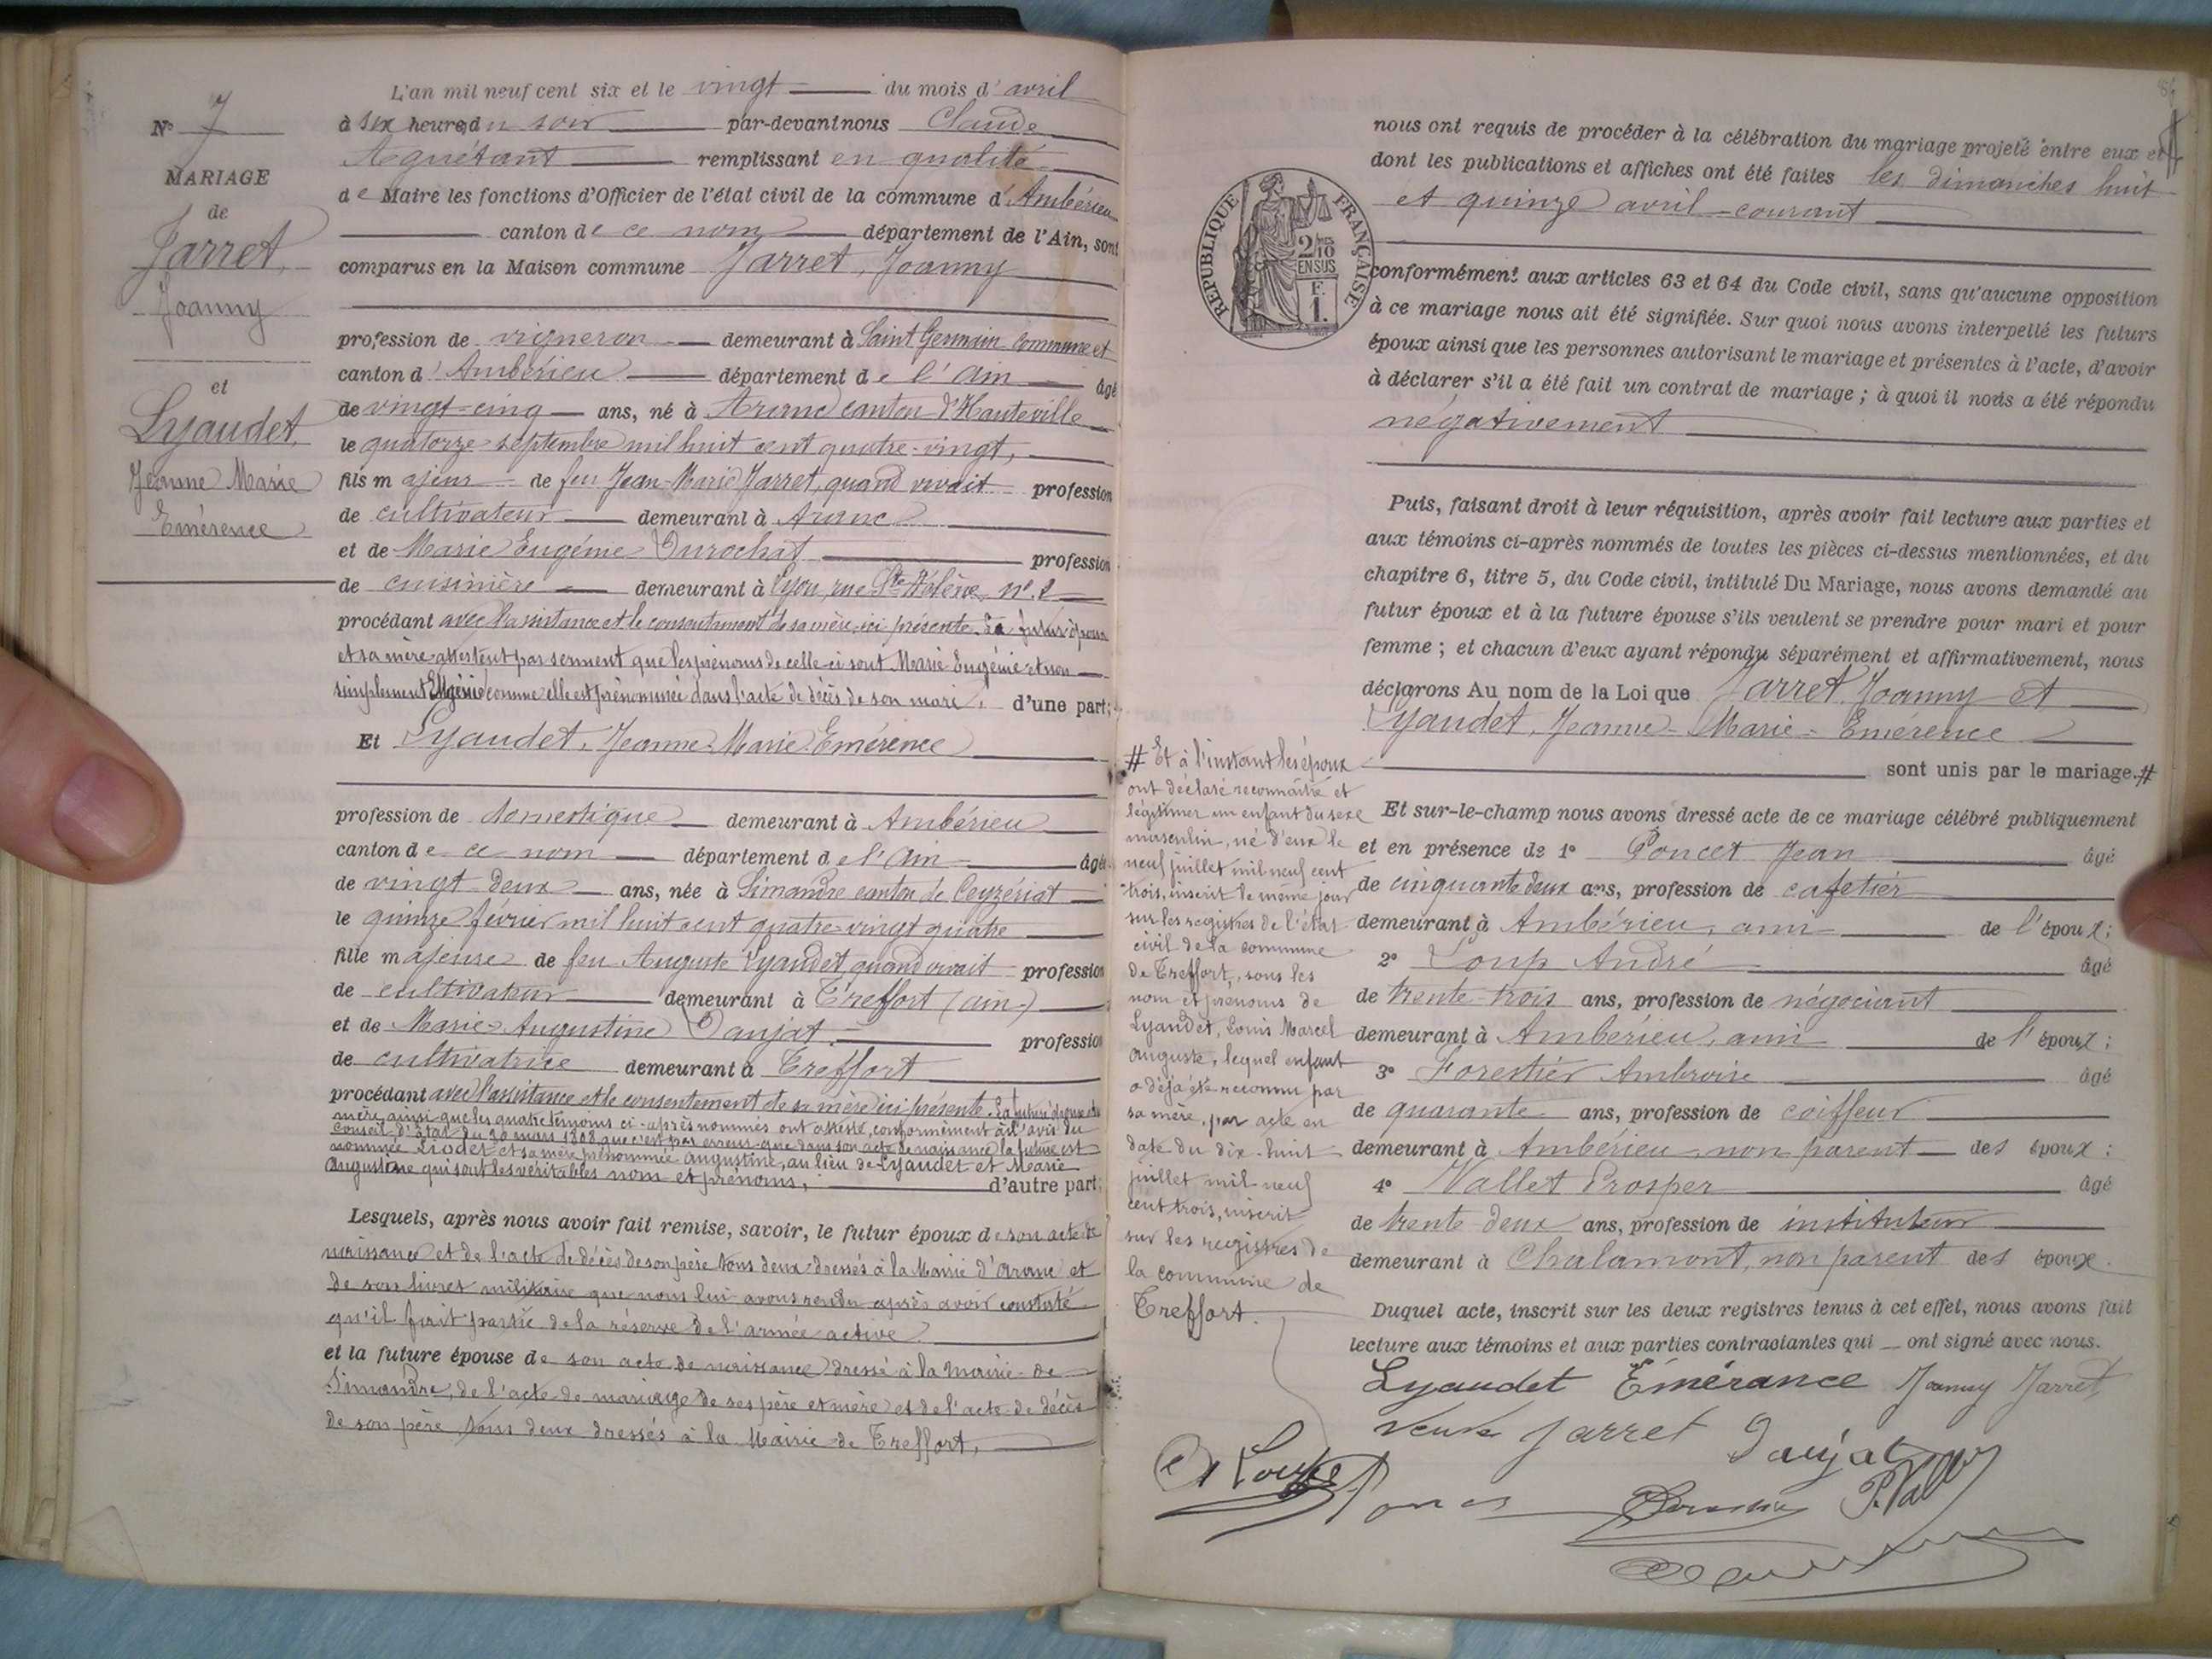 N° 7
MARIAGE
de
Jarret,
Joanny
et
Lyaudet,
Jeanne Marie
Emérence
L'an mil neuf cent six et le vingt du mois d'avril
à six heures du soir par-devant nous Claude
Aguétant remplissant en qualité
de Maire les fonctions d'Officier de l'état civil de la commune d'Ambérieu
canton de ce nom département de l'Ain, sont
comparus en la Maison commune Jarret, Joanny
profession de vigneron demeurant à Saint Germain commune et
canton d'Ambérieu département de l'Ain âgé
de vingt-cinq ans, né à Aranc canton d'Hauteville
le quatorze septembre mil huit cent quatre-vingt,
fils majeur de feu Jean-Marie Jarret, quand vivait profession
de cultivateur demeurant à Aranc
et de Marie Eugénie Durochat profession
de cuisinière demeurant à Lyon, rue Ste Hélène n°. 2
procédant avec l'assistance et le consentement de sa mère, ici présente. Le futur époux
et sa mère attestent par serment que les prénoms de celle-ci sont Marie Eugénie et non
simplement Eugénie comme elle est prénommée dans l'acte de décès de son mari, d'une part;
Et Lyaudet, Jeanne-Marie-Emérence
profession de domestique demeurant à Ambérieu
canton de ce nom département de l'Ain âgée
de vingt-deux ans, née à Simandre canton de Ceyzériat
le quinze février mil huit cent quatre-vingt quatre
fille majeure de feu Auguste Lyaudet, quand vivait profession
de cultivateur demeurant à Treffort (ain)
et de Marie-Augustine Daujat profession
de cultivatrice demeurant à Treffort
procédant avec l'assistance et le consentement de sa mère ici présente. La future épouse et sa
mère, ainsi que les quatre témoins ci-après nommés ont attesté, conformément à l'avis du
Conseil d'Etat du 30 mars 1808 que c'est par erreur que dans son acte de naissance la future est
nommée Liodet et sa mère prénommée Augustine, au lieu de Lyaudet et Marie
Augustine qui sont les véritables nom et prénoms, d'autre part;
Lesquels, après nous avoir fait remise, savoir, le futur époux de son acte de
naissance et de l'acte de décès de son père tous deux dressés à la Mairie d'Aranc et
de son livret militaire que nous lui avons rendu après avoir constaté
qu'il fait partie de la réserve de l'armée active
et la future épouse de son acte de naissance dressé à la mairie de
Simandre, de l'acte de mariage de ses père et mère et de l'acte de décès
de son père tous deux dressés à la Mairie de Treffort,
nous ont requis de procéder à la célébration du mariage projeté entre eux et
dont les publications et affiches ont été faites les dimanches huit
et quinze avril courant
RÉPUBLIQUE FRANÇAISE
2/10
EN SUS
F.
1.
conformément aux articles 63 et 64 du Code civil, sans qu'aucune opposition
à ce mariage nous ait été signifiée. Sur quoi nous avons interpellé les futurs
époux ainsi que les personnes autorisant le mariage et présentes à l'acte, d'avoir
à déclarer s'il a été fait un contrat de mariage ; à quoi il nous a été répondu
négativement
Puis, faisant droit à leur réquisition, après avoir fait lecture aux parties et
aux témoins ci-après nommés de toutes les pièces ci-dessus mentionnées, et du
chapitre 6, titre 5, du Code civil, intitulé Du Mariage, nous avons demandé au
futur époux et à la future épouse s'ils veulent se prendre pour mari et pour
femme ; et chacun d'eux ayant répondu séparément et affirmativement, nous
déclarons Au nom de la Loi que Jarret, Joanny et
Lyaudet, Jeanne-Marie-Emérence
sont unis par le mariage. #
# Et à l'instant les époux
ont déclaré reconnaître et
légitimer un enfant du sexe
masculin, né d'eux le
neuf juillet mil neuf cent
trois, inscrit le même jour
sur les registres de l'état
civil de la commune
de Treffort, sous les
nom et prénoms de
Lyaudet, Louis Marcel
Auguste, lequel enfant
a déjà été reconnu par
sa mère, par acte en
date du dix-huit
juillet mil neuf
cent trois, inscrit
sur les registres de
la commune de
Treffort.
Et sur-le-champ nous avons dressé acte de ce mariage célébré publiquement
et en présence de 1° Poncet Jean âgé
de cinquante deux ans, profession de cafetier
demeurant à Ambérieu, ami de l'époux ;
2° Loup André âgé
de trente-trois ans, profession de négociant
demeurant à Ambérieu, ami de l'époux ;
3° Forestier Ambroise âgé
de quarante ans, profession de coiffeur
demeurant à Ambérieu non parent des époux ;
4° Vallet Prosper âgé
de trente deux ans, profession de instituteur
demeurant à Chalamont, non parent des époux.
Duquel acte, inscrit sur les deux registres tenus à cet effet, nous avons fait
lecture aux témoins et aux parties contractantes qui ont signé avec nous.
Lyaudet Émérance Joanny Jarret
veuve Jarret Daujat
A Loup Poncet P. Vallet